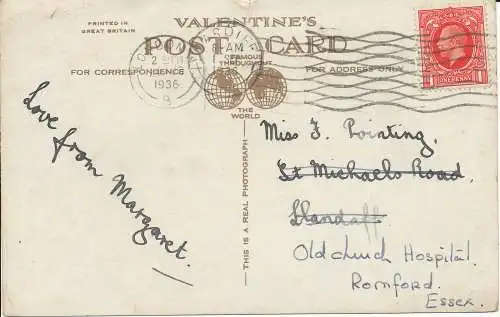 VALENTINE'S
PRINTED IN
GREAT BRITAIN
POST CARD
FOR CORRESPONDENCE
FAMOUS
THROUGHOUT
THE
WORLD
FOR ADDRESS ONLY
1936
ONE PENNY
THIS IS A REAL PHOTOGRAPH
Love from Margaret.
Miss F. Pointing,
St Michaels Road,
Llandaff
Oldchurch Hospital,
Romford.
Essex.